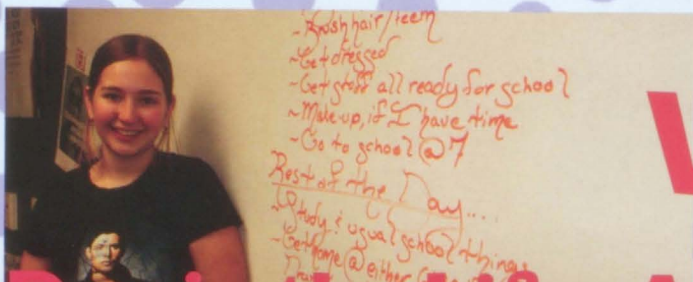 ~Brush hair/teeth
~Get dressed
~Get stuff all ready for school
~Make up, if I have time
~Go to school @ 7
Rest of the Day....
~Study & usual school things
~Get home @ either